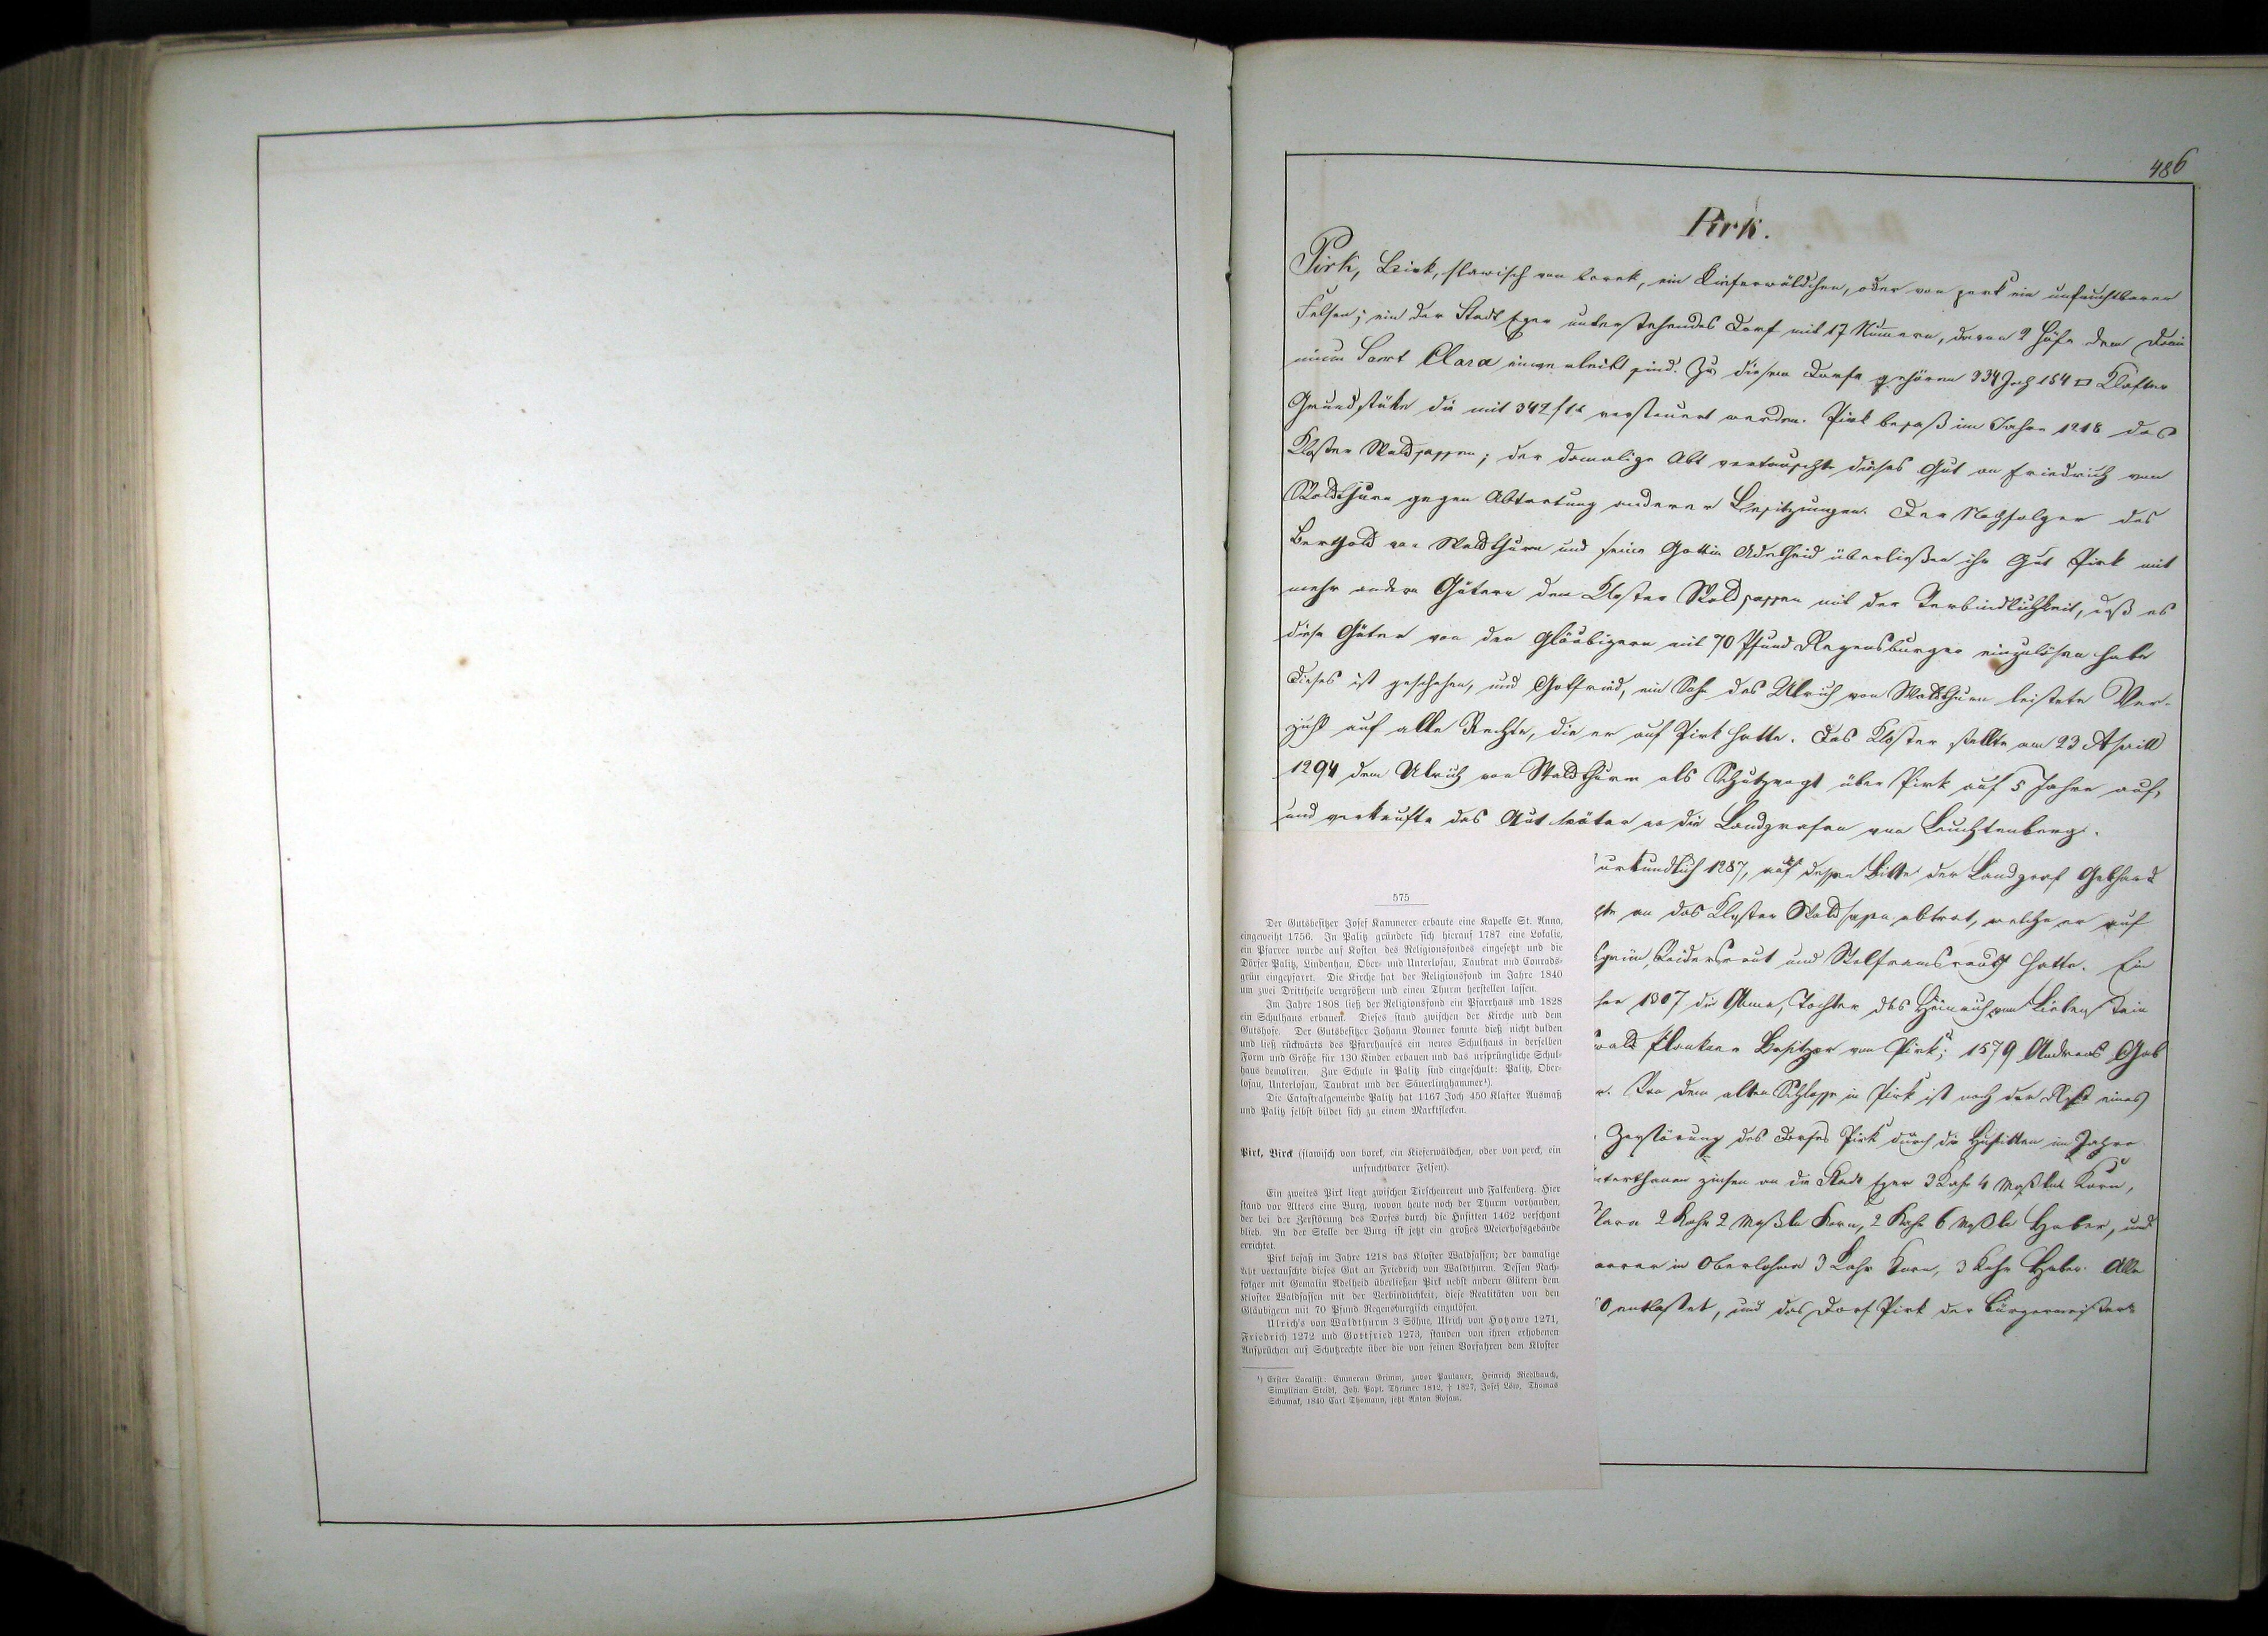 486
Pirk.
Pirk, Birk, slawisch von borek, ein Kieferwäldchen, oder von perk ein unfruchtbarer
Felsen; ein der Stadt Eger unterstehendes Dorf mit 17 Numern, davon 2 Höfe dem Domi
nium Sanct Clara einverleibt sind. Zu diesem Dorfe gehören 334 Joch 154 □ Klafter
Grundstüke die mit 342 f 1 x versteuert werden. Pirk besaß im Jahre 1218 das
Kloster Waldsassen; der damalige Abt vertauschte dieses Gut an Friedrich von
Waldthurn gegen Abtretung anderer Besitzungen. Der Nachfolger des
Berthold von Waldthurn und seine Gattin Adelheid überließen ihr Gut Pirk mit
mehr andern Gütern dem Kloster Waldsassen mit der Verbindlichkeit, daß es
diese Güter von den Gläubigern mit 70 Pfund Regensburger einzulösen habe
Dieses ist geschehen, und Gotfried, ein Sohn des Ulrich von Waldthurn leistete Ver-
zicht auf alle Rechte, die er auf Pirk hatte. Das Kloster stellte am 23 Aprill
1294 dem Ulrich von Waldthurn als Schutzvogt über Pirk auf 5 Jahre auf,
und verkaufte das Gut später an die Landgrafen von Leuchtenberg.
urkundlich 1287, auf dessen Bitte der Landgraf Gebhard
te an das Kloster Waldsassen abtrat, welche er auf
grün, und Wolframsreuth hatte. Ein
1307 die Anna, Tochter des Heinrich von Liebenstein
Besitzer von Pirk; 1579 Andreas
Von dem alten Schlosse in Pirk ist noch der Rest eines
Zerstörung des Dorfes Pirk durch die Husitten im Jahre
unterthanen zinsen an die Stadt Eger 3 Kahr 4 Maßl Korn,
Clara 2 Kahr 2 Maßle Korn, 2 Kahr 6 Maßle Haber, und
Pfarrer in Oberlohma 3 Kahr Korn, 3 Kahr Haber. Alle
0 entlastet, und das Dorf Pirk der Bürgermeister-
575
Der Gutsbesitzer Josef Kammerer erbaute eine Kapelle St. Anna,
eingeweiht 1756. In Palitz gründete sich hierauf 1787 eine Lokalie,
ein Pfarrer wurde auf Kosten des Religionsfondes eingesetzt und die
Dörfer Palitz, Lindenhau, Ober- und Unterlosau, Taubrat und Conrads-
grün eingepfarrt. Die Kirche hat der Religionsfond im Jahre 1840
um zwei Drittheile vergrößern und einen Thurm herstellen lassen.
Im Jahre 1808 ließ der Religionsfond ein Pfarrhaus und 1828
ein Schulhaus erbauen. Dieses stand zwischen der Kirche und dem
Gutshofe. Der Gutsbesitzer Johann Nonner konnte dieß nicht dulden
und ließ rückwärts des Pfarrhauses ein neues Schulhaus in derselben
Form und Größe für 130 Kinder erbauen und das ursprüngliche Schul-
haus demoliren. Zur Schule in Palitz sind eingeschult: Palitz, Ober-
losau, Unterlosau, Taubrat und der Säuerlinghammer¹).
Die Catastralgemeinde Palitz hat 1167 Joch 450 Klafter Ausmaß
und Palitz selbst bildet sich zu einem Marktflecken.
Pirk, Birck (slawisch von borek, ein Kieferwäldchen, oder von perck, ein
unfruchtbarer Felsen).
Ein zweites Pirk liegt zwischen Tirschenreut und Falkenberg. Hier
stand vor Alters eine Burg, wovon heute noch der Thurm vorhanden,
der bei der Zerstörung des Dorfes durch die Husitten 1462 verschont
blieb. An der Stelle der Burg ist jetzt ein großes Meierhofsgebäude
errichtet.
Pirk besaß im Jahre 1218 das Kloster Waldsassen; der damalige
Abt vertauschte dieses Gut an Friedrich von Waldthurm. Dessen Nach-
folger mit Gemalin Adelheid überließen Pirk nebst andern Gütern dem
Kloster Waldsassen mit der Verbindlichkeit, diese Realitäten von den
Gläubigern mit 70 Pfund Regensburgisch einzulösen.
Ulrich's von Waldthurm 3 Söhne, Ulrich von Hotzowe 1271,
Friedrich 1272 und Gottfried 1273, standen von ihren erhobenen
Ansprüchen auf Schutzrechte über die von seinen Vorfahren dem Kloster
¹) Erster Localist: Emmeran Grimm, zuvor Paulaner, Heinrich Riedlbauch,
Simplitian Steidl, Joh. Bapt. Theimer 1812, † 1827, Josef Löw, Thomas
Schumak, 1840 Carl Thomann, jetzt Anton Rosam.